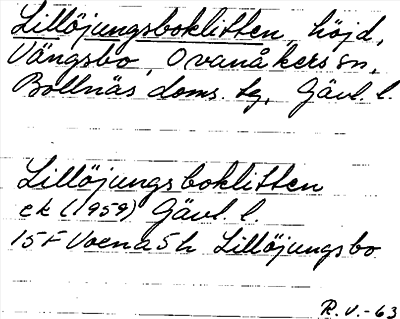 Lillöjungsboklitten, höjd,
Vängsbo, Ovanåkers sn,
Bollnäs doms. tg, Gävl. l.
Lillöjungsboklitten
ek (1959) Gävl. l.
15F Voxna 5 h Lillöjungsbo
R.V.-63